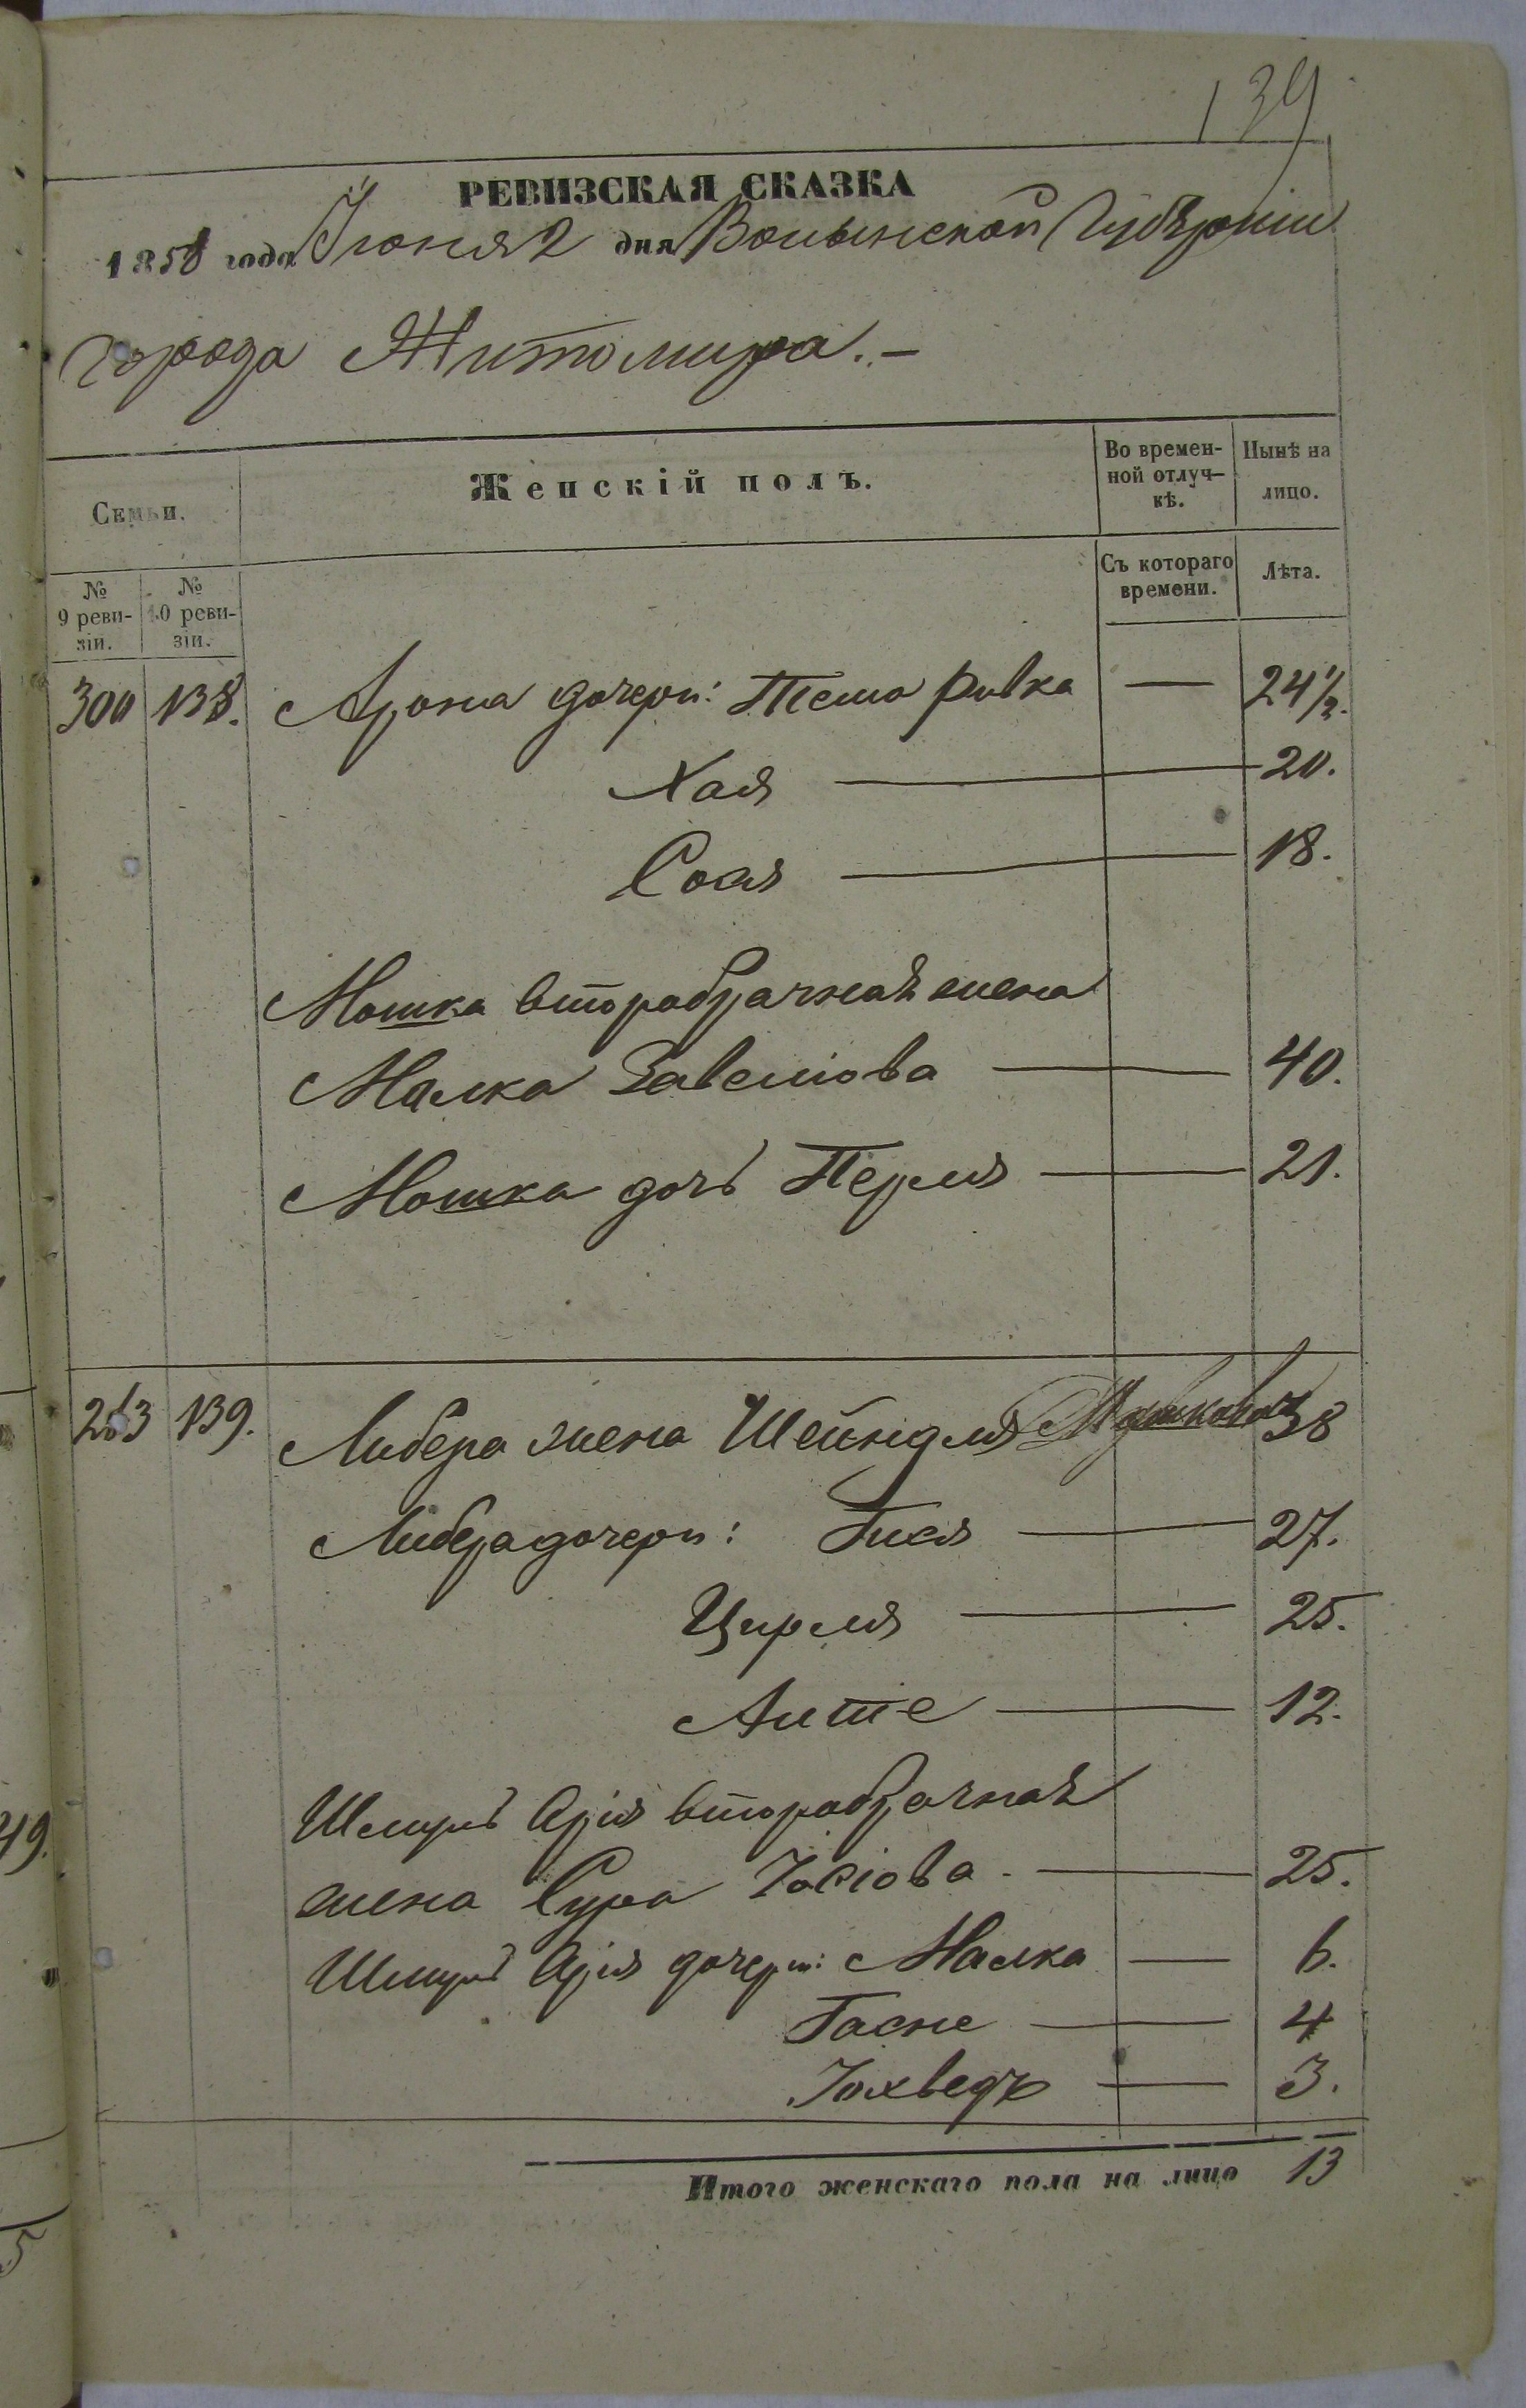 139
РЕВИЗСКАЯ СКАЗКА
1858 года Іюня 2 дня Волынской Губерніи
города Житомира.-
Семьи.
Женскій полъ.
Во времен-
ной отлуч-
кѣ.
Нынѣ на
лицо.
№
9 реви-
зіи.
№
10 реви-
зіи.
Съ котораго
времени.
Лѣта.
300 138. Арона дочери: Тема Ривка — 24½.
Хая — 20.
Сося — 18.
Мошка второбрачная жена
Малка Завелiова — 40.
Мошка дочь Перля — 21.
263 139. Либера жена Шейндля Мошкова 38
Либера дочери: Гися — 27.
Цирля — 25.
Алте — 12.
Шмуль Арія второбрачная
жена Сура Іосіова — 25.
Шмуль Арія дочери: Малка — 6.
Гасне — 4
Іохведъ — 3.
Итого женскаго пола на лицо 13
49.
5